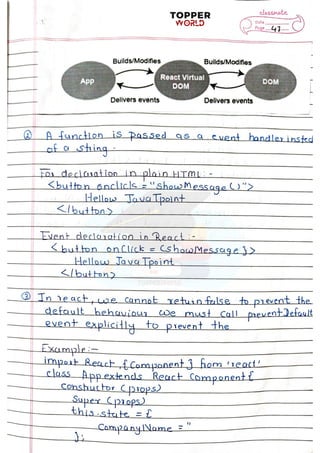 TOPPER
WORLD
classmate
Date
Page 47
Builds/Modifies
Builds/Modifies
App
React Virtual
DOM
DOM
Delivers events
Delivers events
② A function is passed as a event handler insted
of a sting.
For declaration in plain HTML:-
<button onclick = "ShowMessage ()">
Hellow JavaTpoint
</button>
Event declaration in React :-
<button onClick = {showMessage}>
Hellow Java Tpoint
</button>
③ In react, we cannot return false to prevent the
default behaviour we must call preventDefault
event explicitly to prevent the
Example:-
import React, {Component} from 'react'
class App extends React Component {
constructor (props)
Super (props)
this.state = {
CompanyName = "
};